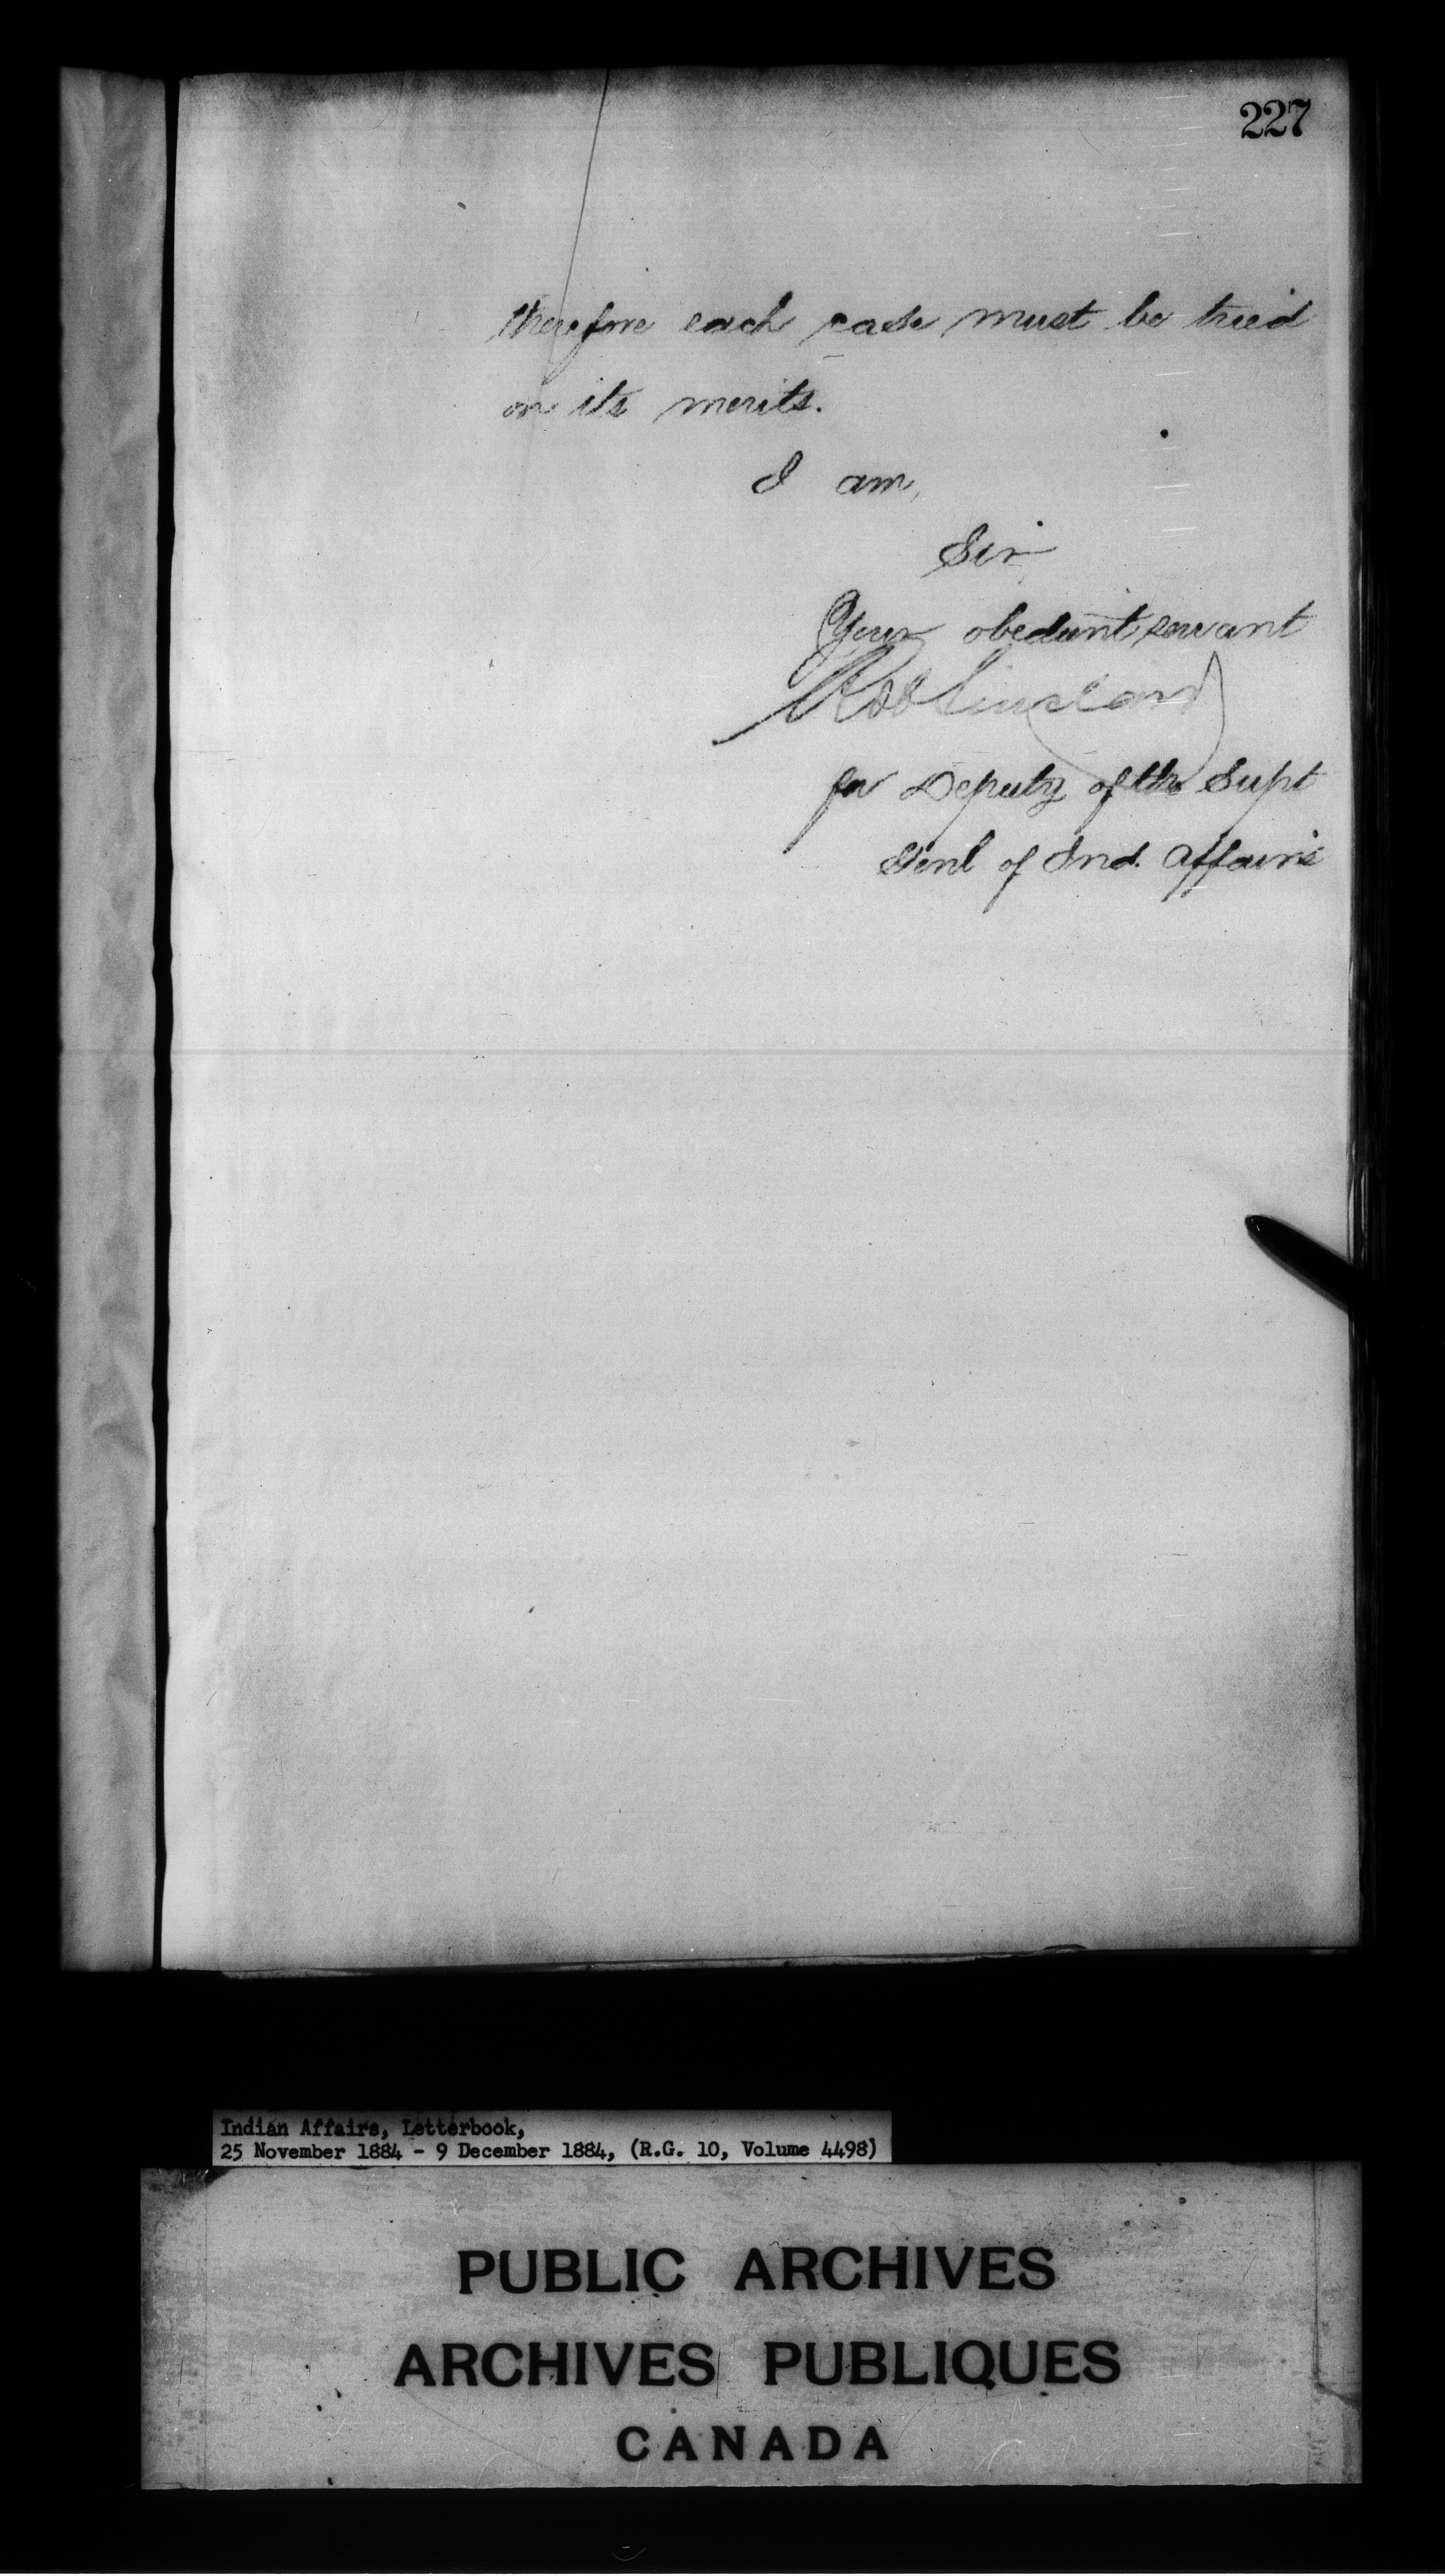 227
therefore each case must be tried
on its merits.
I am,
Sir
Your obedient servant
for Deputy of the Supt
Genl of Ind. Affairs
Indian Affairs, Letterbook,
25 November 1884 - 9 December 1884, (R.G. 10, Volume 4498)
PUBLIC ARCHIVES
ARCHIVES PUBLIQUES
CANADA